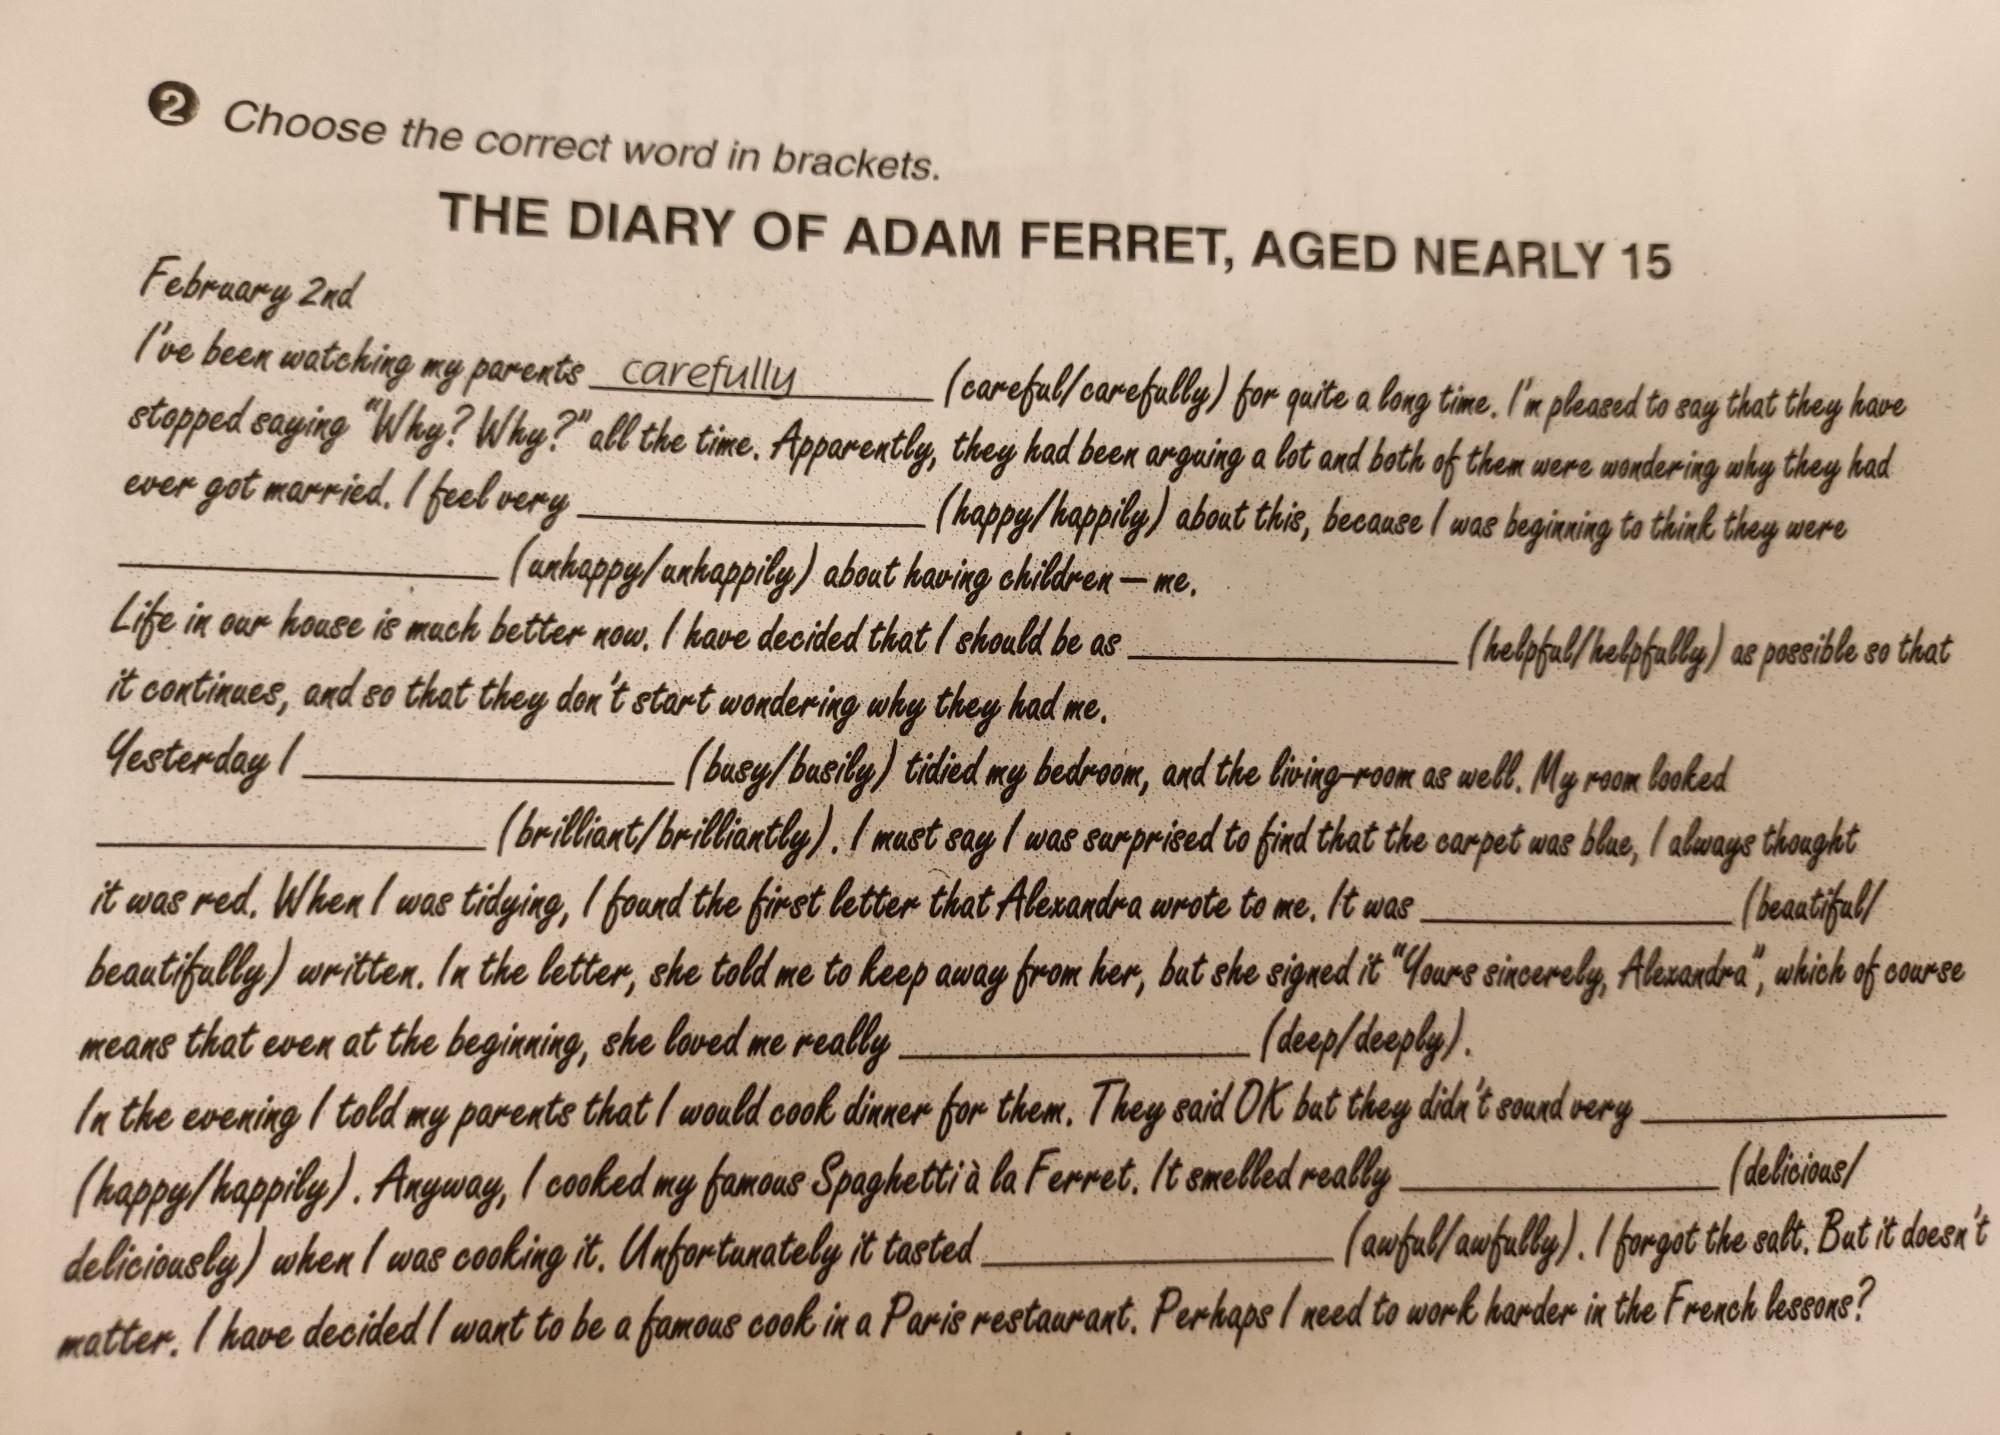 2 Choose the correct word in brackets.
THE DIARY OF ADAM FERRET, AGED NEARLY 15
February 2nd
I've been watching my parents carefully (careful/carefully) for quite a long time. I'm pleased to say that they have
stopped saying "Why? Why?" all the time. Apparently, they had been arguing a lot and both of them were wondering why they had
ever got married. I feel very ____________ (happy/happily) about this, because I was beginning to think they were
____________ (unhappy/unhappily) about having children – me.
Life in our house is much better now. I have decided that I should be as ____________ (helpful/helpfully) as possible so that
it continues, and so that they don't start wondering why they had me.
Yesterday I ____________ (busy/busily) tidied my bedroom, and the living-room as well. My room looked
____________ (brilliant/brilliantly). I must say I was surprised to find that the carpet was blue, I always thought
it was red. When I was tidying, I found the first letter that Alexandra wrote to me. It was ____________ (beautiful/
beautifully) written. In the letter, she told me to keep away from her, but she signed it "Yours sincerely, Alexandra", which of course
means that even at the beginning, she loved me really ____________ (deep/deeply).
In the evening I told my parents that I would cook dinner for them. They said OK but they didn't sound very ____________
(happy/happily). Anyway, I cooked my famous Spaghetti à la Ferret. It smelled really ____________ (delicious/
deliciously) when I was cooking it. Unfortunately it tasted ____________ (awful/awfully). I forgot the salt. But it doesn't
matter. I have decided I want to be a famous cook in a Paris restaurant. Perhaps I need to work harder in the French lessons?